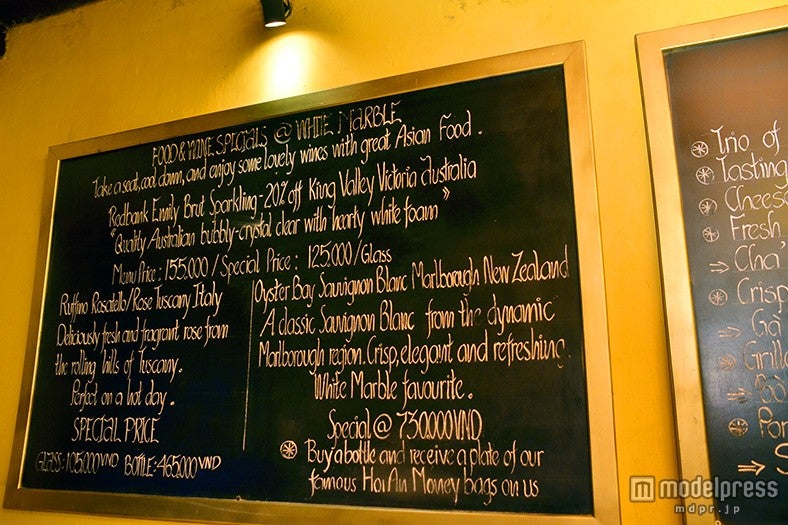 FOOD & WINE SPECIALS @ WHITE MARBLE
Take a seat, cool down, and enjoy some lovely wines with great Asian Food.
Redbank Emily Brut Sparkling - 20% off King Valley Victoria Australia
"Quality Australian bubbly-crystal clear with hearty white foam"
Menu Price: 155.000 / Special Price: 125.000 / Glass
Ruffino Rosatello/Rose Tuscany Italy
Deliciously fresh and fragrant rose from
the rolling hills of Tuscany.
Perfect on a hot day.
SPECIAL PRICE
GLASS: 105.000 VND BOTTLE: 465.000 VND
Oyster Bay Sauvignon Blanc Marlborough New Zealand
A classic Sauvignon Blanc from the dynamic
Marlborough region. Crisp, elegant and refreshing.
White Marble favourite.
Special @ 730.000 VND
Buy a bottle and receive a plate of our
famous Hoi An Money bags on us
Trio of
Tasting
Cheese
Fresh
Cha'
Crisp
Ga'
Grille
Por
modelpress
mdpr.jp